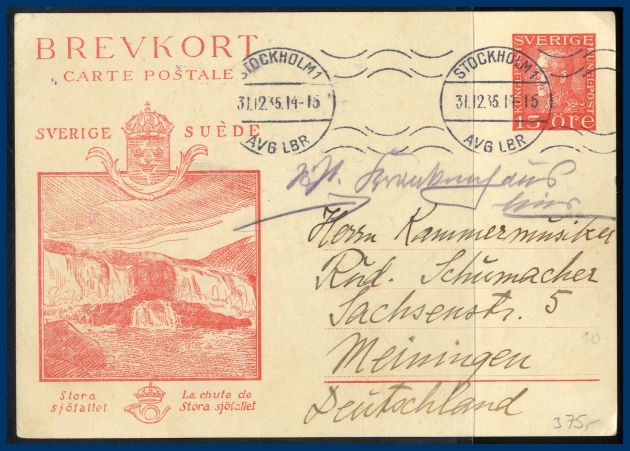 BREVKORT
CARTE POSTALE
SVERIGE SUÈDE
STOCKHOLM 1
31.12.36.14-15
AVG LBR
STOCKHOLM 1
31.12.36.14-15
AVG LBR
SVERIGE
KUNGL. POST
15 ÖRE
Krankenhaus
hier
Herrn Kammermusiker
Rud. Schumacher
Sachsenstr. 5
Meiningen
Deutschland
Stora
sjöfallet
La chute de
Stora sjöfallet
375,-